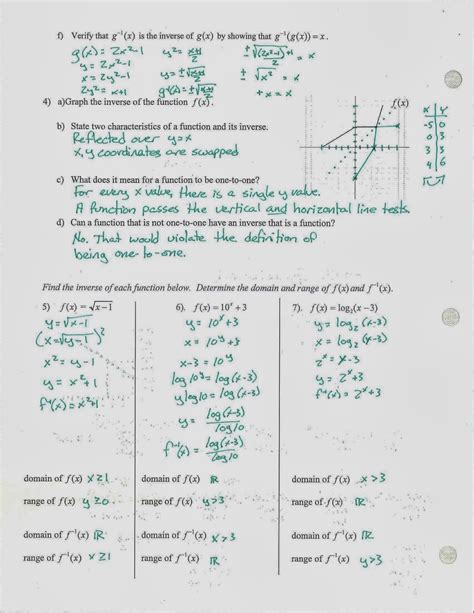 f) Verify that g⁻¹(x) is the inverse of g(x) by showing that g⁻¹(g(x)) = x.
g(x) = 2x²-1
y = 2x²-1
x = 2y²-1
2y² = x+1
y² = x+1/2
y = ±√x+1/2
g⁻¹(x) = ±√x+1/2
±√(2x²-1)+1/2 = x
±√x² = x
±x = x
4) a)Graph the inverse of the function f(x).
f(x)
x y
-5 0
0 3
3 3
4 6
b) State two characteristics of a function and its inverse.
Reflected over y=x
x,y coordinates are swapped
c) What does it mean for a function to be one-to-one?
For every x value, there is a single y value.
A function passes the vertical and horizontal line tests.
d) Can a function that is not one-to-one have an inverse that is a function?
No. That would violate the definition of
being one-to-one.
Find the inverse of each function below. Determine the domain and range of f(x) and f⁻¹(x).
5) f(x) = √x-1
y = √x-1
(x = √y-1)²
x² = y-1
y = x²+1
f⁻¹(x) = x²+1
domain of f(x) x≥1
range of f(x) y≥0
domain of f⁻¹(x) ℝ
range of f⁻¹(x) x≥1
6). f(x) = 10ˣ + 3
y = 10ˣ+3
x = 10ʸ+3
x-3 = 10ʸ
log10ʸ = log(x-3)
ylog10 = log(x-3)
y = log(x-3)/log10
f⁻¹(x) = log(x-3)/log10
domain of f(x) ℝ
range of f(x) y>3
domain of f⁻¹(x) x>3
range of f⁻¹(x) ℝ
7). f(x) = log₂(x-3)
y = log₂(x-3)
x = log₂(y-3)
2ˣ = x-3
y = 2ˣ+3
f⁻¹(x) = 2ˣ+3
domain of f(x) x>3
range of f(x) ℝ
domain of f⁻¹(x) ℝ
range of f⁻¹(x) y>3